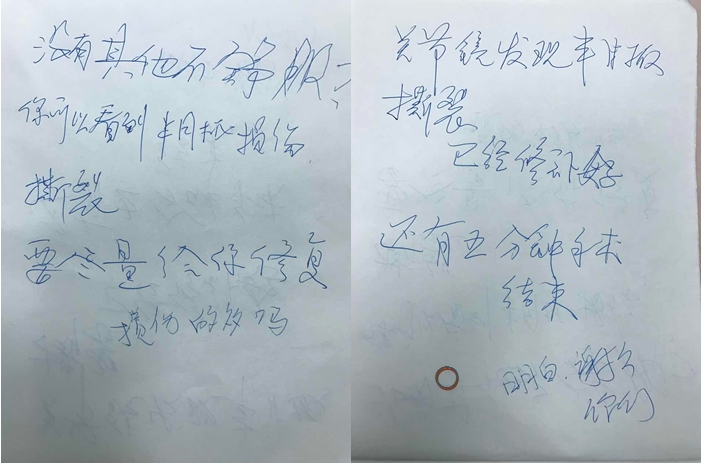 没有其他不舒服?
你可以看到半月板损伤
撕裂
要尽量给你修复
损伤的多吗
关节镜发现半月板
撕裂
已经修补好
还有五分钟手术
结束
明白.谢谢
你们